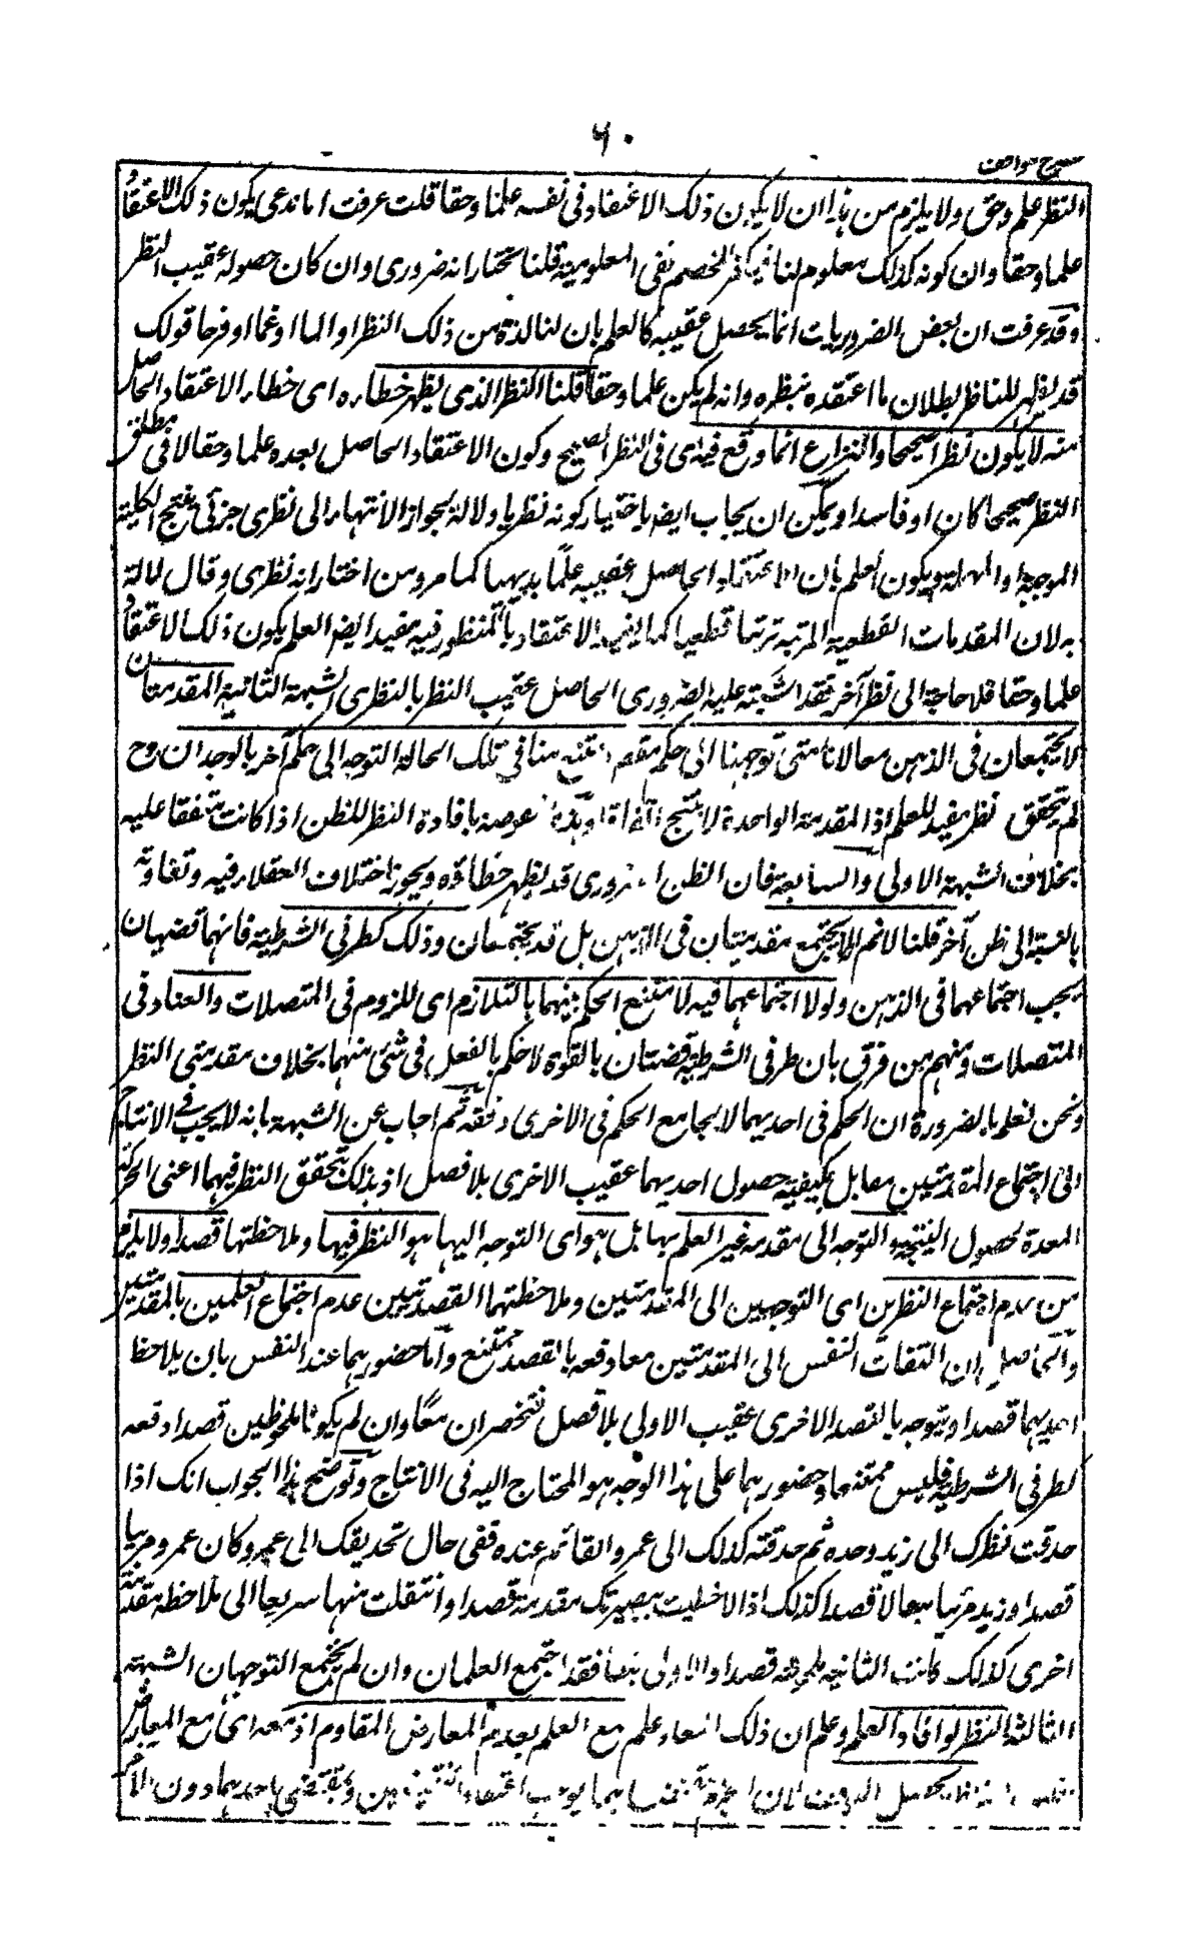 ٦٠
شرح مواقف
النظر علم وحق ولا يلزم من هذا ان لا يكون ذلك الاعتقاد فى نفسه علما وحقا قلت عرفت ان ما ندعى يكون ذلك الاعتقاد
علما وحقا وان كونه كذلك معلوم لنا فيكفى الخصم نفى المعلومية قلنا نختار انه ضرورى وان كان حصوله عقيب النظر
وقد عرفت ان بعض الضروريات انما يحصل عقيبه كالعلم بان لنا لذة من ذلك النظر او الما او غما او فرحا قولك
قد يظهر للناظر بطلان ما اعتقده بنظره وانه لم يكن علما وحقا قلنا النظر الذى يظهر خطاءه اى خطاء الاعتقاد الحاصل
منه لا يكون نظرا صحيحا والنزاع انما وقع فيه اى فى النظر الصحيح وكون الاعتقاد الحاصل بعده علما وحقا لا فى مطلق
النظر صحيحا كان او فاسدا ويمكن ان يجاب ايضا باختيار كونه نظريا ولا لة بجواز الانتهاء الى نظرى جزئى ينتج الكلية
الموجبة او المهملة ويكون العلم بان الاعتقاد الحاصل عقيبه علما بديهيا كما مر ومن اختار انه نظرى وقال لا لة
به لان المقدمات القطعية المرتبة ترتبا قطعيا كما يفيد الاعتقاد بالمنظور فيه مفيد ايضا العلم بكون ذلك الاعتقاد
علما وحقا فلا حاجة الى نظر آخر فقد اشتبه عليه الضرورى الحاصل عقيب النظر بالنظرى الشبهة الثانية المقدمتان
لا يجتمعان فى الذهن معا لانا متى توجهنا الى حكم مقصود امتنع منا فى تلك الحالة التوجه الى حكم آخر بالوجدان وح
لم يتحقق نظر مفيد للعلم اذ المقدمة الواحدة لا تنتج اتفاقا وهذه منقوضة بافادة النظر للظن اذا كانت متفقا عليه
بخلاف الشبهة الاولى والسابعة فان الظن الضرورى قد يظهر خطاؤه ويجوز اختلاف العقلاء فيه وتفاوته
بالنسبة الى ظن آخر قلنا لا نم انه لا يجتمع مقدمتان فى الذهن بل قد يجتمعان وذلك كطرفى الشرطية فانهما قضيتان
يجب اجتماعهما فى الذهن ولولا اجتماعهما فيه لامتنع الحكم بينهما بالتلازم اى اللزوم فى المتصلات والعناد فى
المنفصلات ومنهم من فرق بان طرفى الشرطية قضيتان بالقوة لا حكم بالفعل فى شئ منهما بخلاف مقدمتى النظر
ونحن نعلم بالضرورة ان الحكم فى احديهما لا يجامع الحكم فى الاخرى دفعة ثم اجاب عن الشبهة بانه لا يجب فى الانتاج
الى اجتماع المقدمتين معا بل يكفيه حصول احديهما عقيب الاخرى بلا فصل اذ بذلك يتحقق النظر فيهما اعنى الحركة
المعدة لحصول النتيجة والتوجه الى مقدمة غير العلم بها بل هو اى التوجه اليها هو النظر فيها وملاحظتها قصدا ولا يلزم
من عدم اجتماع النظرين اى التوجهين الى المقدمتين وملاحظتهما القصديتين عدم اجتماع العلمين بالمقدمتين
والحاصل ان التفات النفس الى المقدمتين معا دفعة بالقصد ممتنع واما حضورهما عند النفس بان يلاحظ
احديهما قصدا ويتوجه بالقصد الاخرى عقيب الاولى بلا فصل فتحضران معا وان لم يكونا ملحوظين قصدا دفعة
كطرفى الشرطية فليس ممتنعا وحضورهما على هذا الوجه هو المحتاج اليه فى الانتاج وتوضيح هذا الجواب انك اذا
حدقت نظرك الى زيد وحده ثم حدقته كذلك الى عمرو القائم عنده ففى حال تحديقك الى عمرو كان عمرو مرئيا
قصدا وزيد مرئيا تبعا لا قصدا كذلك اذا لاحظت ببصيرتك مقدمة قصدا وانتقلت منها سريعا الى ملاحظة مقدمة
اخرى كذلك كانت الثانية ملحوظة قصدا والاولى تبعا فقد اجتمع العلمان وان لم يجتمع التوجهان الشبهة
الثالثة النظر لو افاد العلم وعلم ان ذلك المفاد علم مع العلم بعدم المعارض المقاوم اذ معه اى مع المعارض